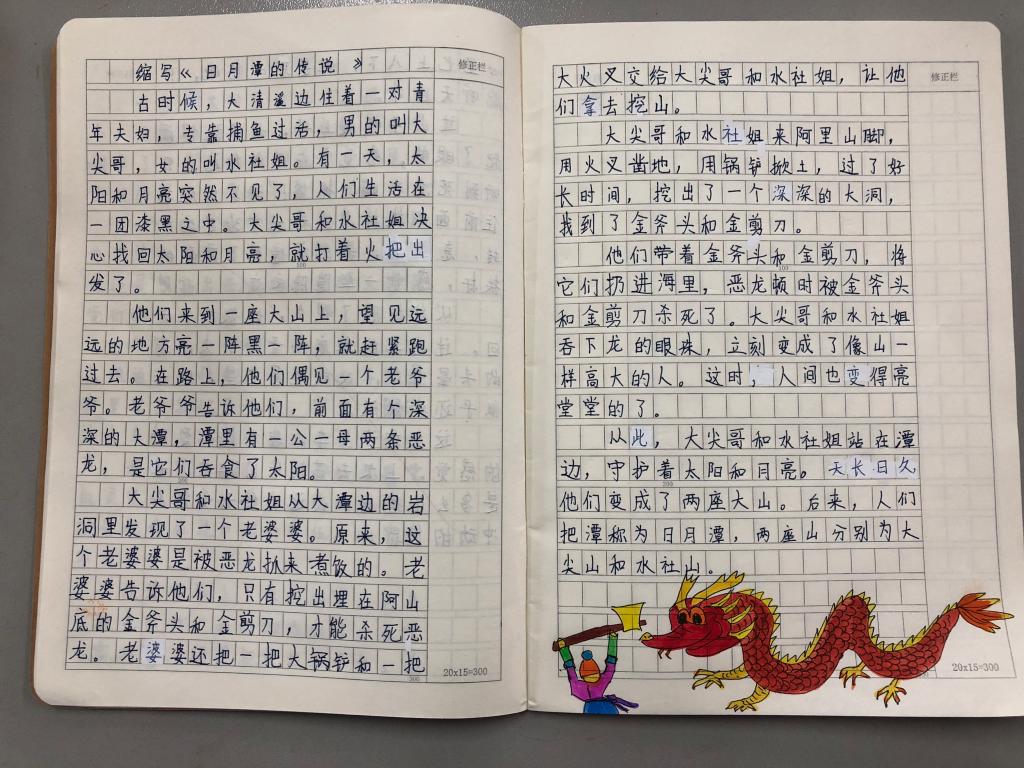 缩写《日月潭的传说》
修正栏
古时候，大清溪边住着一对青
年夫妇，专靠捕鱼过活，男的叫大
尖哥，女的叫水社姐。有一天，太
阳和月亮突然不见了，人们生活在
一团漆黑之中。大尖哥和水社姐决
心找回太阳和月亮，就打着火把出
发了。
他们来到一座大山上，望见远
远的地方亮一阵黑一阵，就赶紧跑
过去。在路上，他们偶见一个老爷
爷。老爷爷告诉他们，前面有个深
深的大潭，潭里有一公一母两条恶
龙，是它们吞食了太阳。
大尖哥和水社姐从大潭边的岩
洞里发现了一个老婆婆。原来，这
个老婆婆是被恶龙抓来煮饭的。老
婆婆告诉他们，只有挖出埋在阿山
底的金斧头和金剪刀，才能杀死恶
龙。老婆婆还把一把大锅铲和一把
300
20x15=300
大火叉交给大尖哥和水社姐，让他
们拿去挖山。
修正栏
大尖哥和水社姐来阿里山脚，
用火叉凿地，用锅铲掀土，过了好
长时间，挖出了一个深深的大洞，
找到了金斧头和金剪刀。
他们带着金斧头和金剪刀，将
100
它们扔进海里，恶龙顿时被金斧头
和金剪刀杀死了。大尖哥和水社姐
吞下龙的眼珠，立刻变成了像山一
样高大的人。这时，人间也变得亮
堂堂的了。
从此，大尖哥和水社姐站在潭
边，守护着太阳和月亮。天长日久
200
他们变成了两座大山。后来，人们
把潭称为日月潭，两座山分别为大
尖山和水社山。
20x15=300